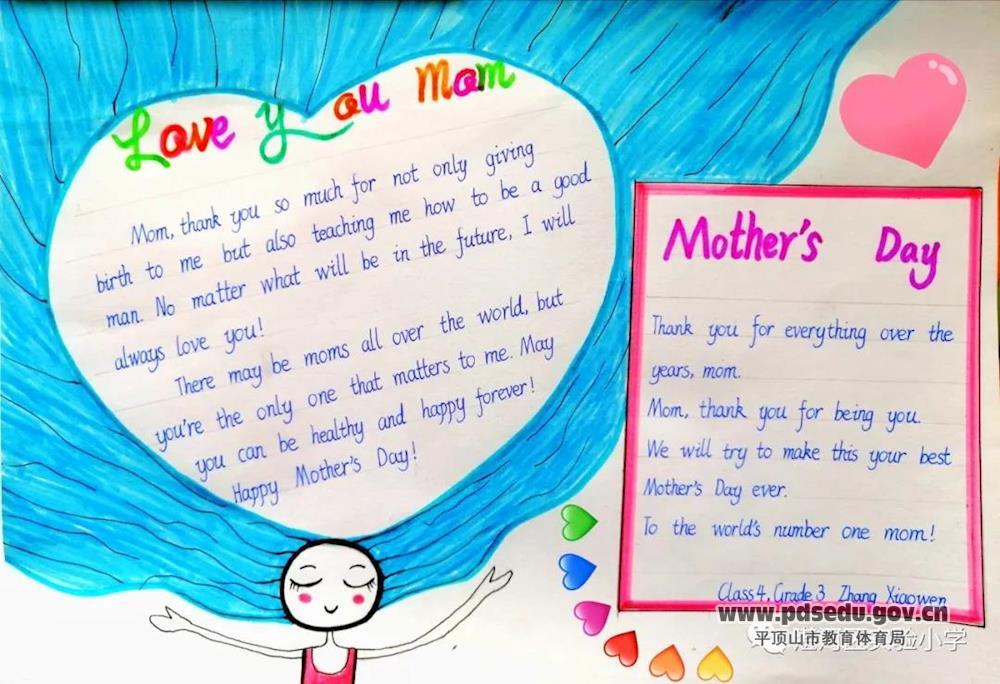 Love you Mom
Mom, thank you so much for not only giving
birth to me but also teaching me how to be a good
man. No matter what will be in the future, I will
always love you!
There may be moms all over the world, but
you're the only one that matters to me. May
you can be healthy and happy forever!
Happy Mother's Day!
Mother's Day
Thank you for everything over the
years, mom.
Mom, thank you for being you.
We will try to make this your best
Mother's Day ever.
To the world's number one mom!
Class 4, Grade 3 Zhang Xiaowen
www.pdsedu.gov.cn
平顶山市教育体育局
实验小学